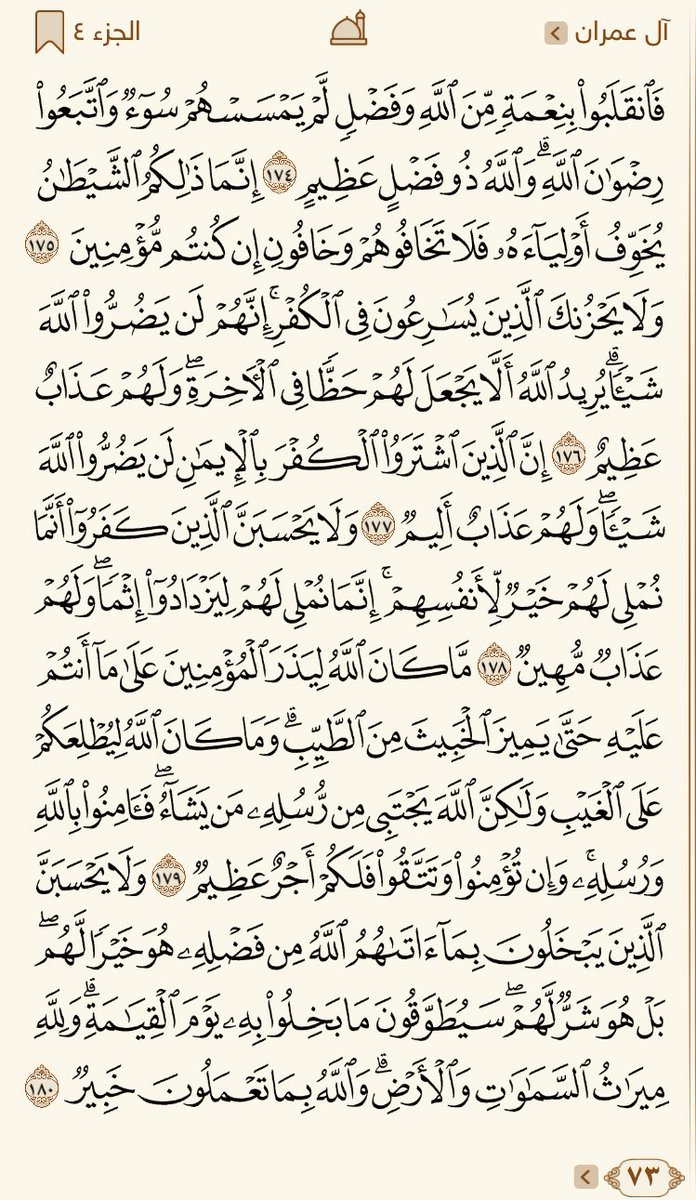 آل عمران الجزء ٤
فَٱنقَلَبُوا۟ بِنِعْمَةٍ مِّنَ ٱللَّهِ وَفَضْلٍ لَّمْ يَمْسَسْهُمْ سُوٓءٌ وَٱتَّبَعُوا۟
رِضْوَٰنَ ٱللَّهِ ۗ وَٱللَّهُ ذُو فَضْلٍ عَظِيمٍ ١٧٤ إِنَّمَا ذَٰلِكُمُ ٱلشَّيْطَٰنُ
يُخَوِّفُ أَوْلِيَآءَهُۥ فَلَا تَخَافُوهُمْ وَخَافُونِ إِن كُنتُم مُّؤْمِنِينَ ١٧٥
وَلَا يَحْزُنكَ ٱلَّذِينَ يُسَٰرِعُونَ فِى ٱلْكُفْرِ ۚ إِنَّهُمْ لَن يَضُرُّوا۟ ٱللَّهَ
شَيْـًٔا ۗ يُرِيدُ ٱللَّهُ أَلَّا يَجْعَلَ لَهُمْ حَظًّا فِى ٱلْـَٔاخِرَةِ ۖ وَلَهُمْ عَذَابٌ
عَظِيمٌ ١٧٦ إِنَّ ٱلَّذِينَ ٱشْتَرَوُا۟ ٱلْكُفْرَ بِٱلْإِيمَٰنِ لَن يَضُرُّوا۟ ٱللَّهَ
شَيْـًٔا ۖ وَلَهُمْ عَذَابٌ أَلِيمٌ ١٧٧ وَلَا يَحْسَبَنَّ ٱلَّذِينَ كَفَرُوٓا۟ أَنَّمَا
نُمْلِى لَهُمْ خَيْرٌ لِّأَنفُسِهِمْ ۚ إِنَّمَا نُمْلِى لَهُمْ لِيَزْدَادُوٓا۟ إِثْمًا ۖ وَلَهُمْ
عَذَابٌ مُّهِينٌ ١٧٨ مَّا كَانَ ٱللَّهُ لِيَذَرَ ٱلْمُؤْمِنِينَ عَلَىٰ مَآ أَنتُمْ
عَلَيْهِ حَتَّىٰ يَمِيزَ ٱلْخَبِيثَ مِنَ ٱلطَّيِّبِ ۗ وَمَا كَانَ ٱللَّهُ لِيُطْلِعَكُمْ
عَلَى ٱلْغَيْبِ وَلَٰكِنَّ ٱللَّهَ يَجْتَبِى مِن رُّسُلِهِۦ مَن يَشَآءُ ۖ فَـَٔامِنُوا۟ بِٱللَّهِ
وَرُسُلِهِۦ ۚ وَإِن تُؤْمِنُوا۟ وَتَتَّقُوا۟ فَلَكُمْ أَجْرٌ عَظِيمٌ ١٧٩ وَلَا يَحْسَبَنَّ
ٱلَّذِينَ يَبْخَلُونَ بِمَآ ءَاتَىٰهُمُ ٱللَّهُ مِن فَضْلِهِۦ هُوَ خَيْرًا لَّهُم ۖ
بَلْ هُوَ شَرٌّ لَّهُمْ ۖ سَيُطَوَّقُونَ مَا بَخِلُوا۟ بِهِۦ يَوْمَ ٱلْقِيَٰمَةِ ۗ وَلِلَّهِ
مِيرَٰثُ ٱلسَّمَٰوَٰتِ وَٱلْأَرْضِ ۗ وَٱللَّهُ بِمَا تَعْمَلُونَ خَبِيرٌ ١٨٠
٧٣